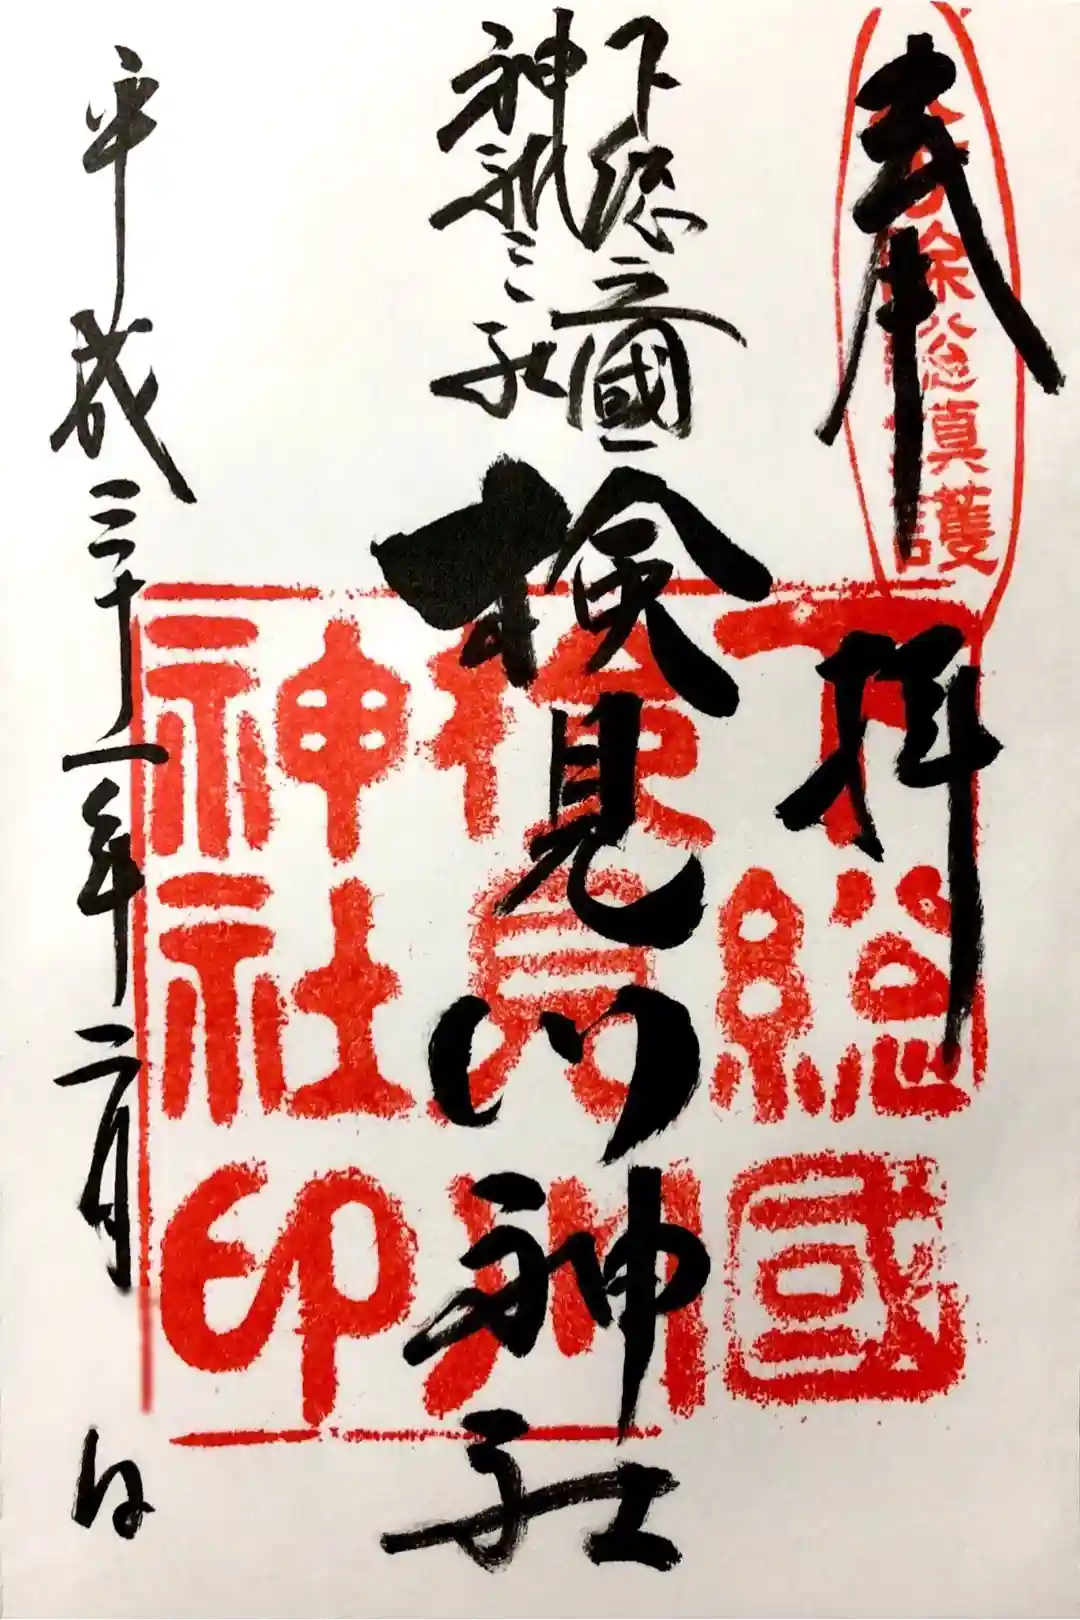 奉拝
下総之國
神祇三社
検見川神社
平成三十一年二月 日
下総國
検見川
神社印